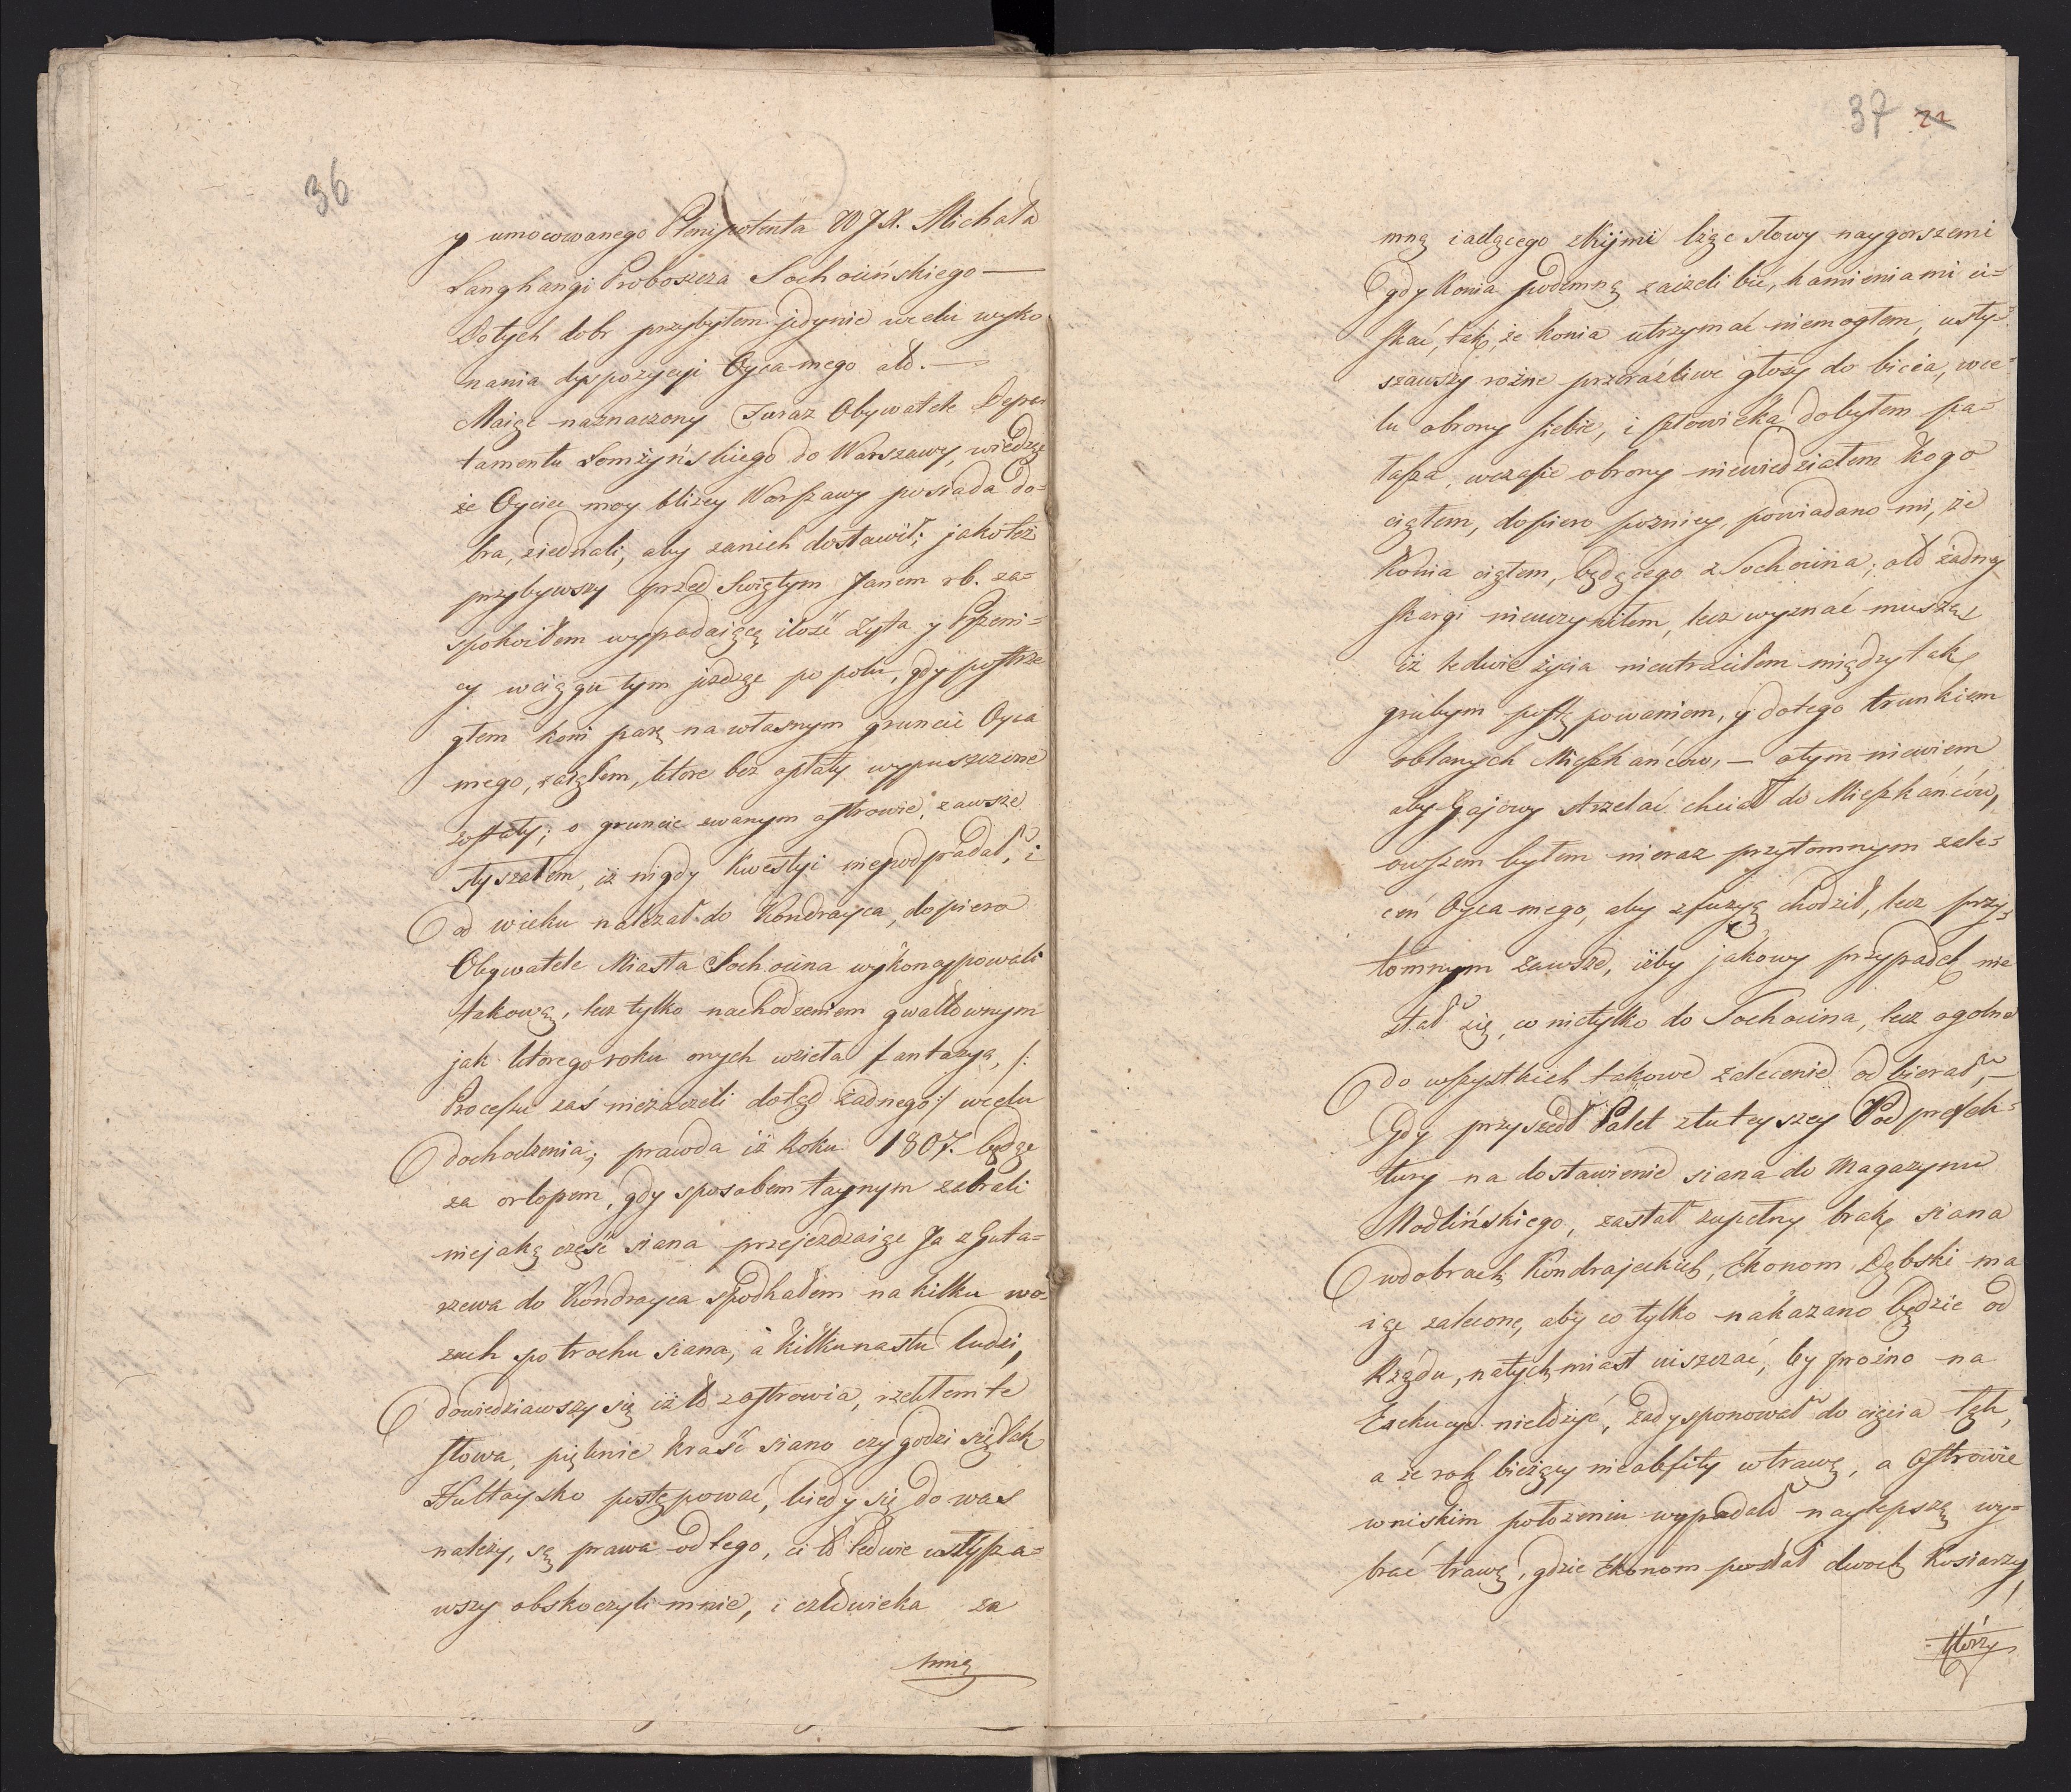 36
y umocowanego Plenipotenta WJX. Michała
Langhangi Proboszcza Sochocińskiego —
Dotych dobr przybyłem jedynie wcelu wyko
nania dyspozycyi Oyca mego ał. —
Maiąc naznaczony Furaz Obywatele Depar
tamentu Łomżyńskiego do Warszawy, wiedząc
że Oyciec moy bliżey Warszawy posiada do-
bra, ziednali, aby zanich dostawił; jakoteż
przybywszy przed Swiętym Janem rb. za-
spokoiłem wypadaiącą ilość Żyta y Pszeni-
cy wciągu tym jeżdżąc po polu, gdy postrze
głem koni parę na własnym gruncie Oyca
mego, zaiąłem, ktore bez opłaty wypuszczone
zostały; o gruncie zwanym ostrowie, zawsze
słyszałem, iż nigdy kwestyi niepodpadał, i
od wieku należał do Kondrayca, dopiero
Obywatele Miasta Sochocina wykonaypowali
takową, lecz tylko nachodzeniem gwałtownym
jak ktorego roku onych wzieła fantazya, /:
Procesu zaś niezaczeli dotąd żadnego:/ wcelu
dochodzenia; prawda iż Roku 1807. będąc
za orlopem, gdy sposobem taynym zabrali
niejaką część siana przejeżdzaiąc Ja z Guta-
rzewa do Kondrayca spodkałem na kilku wo-
zach po trochu siana, a kilkunastu ludzi,
dowiedziawszy się iż to z ostrowia, rzekłem te
słowa, pięknie kraść siano czy godzi się tak
Hultaysko postępować, kiedy się do was
należy, są prawa od tego, ci to ledwie usłysza-
wszy obskoczyli mnie, i człowieka za
mną
37 21
mną iadącego z kijmi lżąc słowy naygorszemi
gdy konia podemną zaczeli bić, kamieniami ci-
skać, tak, że konia utrzymać niemogłem, usły-
szawszy rożne przeraźliwe głosy do bicia, wce-
lu obrony siebie, i człowieka dobyłem pa-
łasza, wczasie obrony niewiedziałem kogo
ciąłem, dopiero pozniey, powiadano mi, że
Konia ciąłem, będącego z Sochocina; ało żadney
skargi nieuczyniłem, lecz wyznać muszę
iż ledwie życia nieutraciłem między tak
grubym postępowaniem, y dotego trunkiem
oblanych Mieszkańcow, — otym niewiem
aby Gajowy strzelać chciał do Mieszkańców,
owszem byłem nieraz przytomnym zale-
ceń Oyca mego, aby z fuzyą chodził, lecz przy-
tomnym zawsze, iżby jakowy przypadek nie
stał się, co nietylko do Sochocina, lecz ogolnie
do wszystkich takowe zalecenie odbierał, —
Gdy przyszedł Palet ztuteyszey Podprefek-
tury na dostawienie siana do Magazynu
Modlińskiego, zastał zupełny brak siana
wdobrach Kondrajeckich, Ekonom Dębski ma
iąc zalecone, aby co tylko nakazano będzie od
Rządu, natychmiast uiszczać, by prożno na
Exekucye nieldżyć, zadysponował do cięcia Łąk,
a że rok bieżący nieobfity wtrawę, a Ostrowie
wniskim położeniu wypadało naylepszą wy-
brać trawę, gdzie Ekonom posłał dwoch Kosiarzy,
którzy